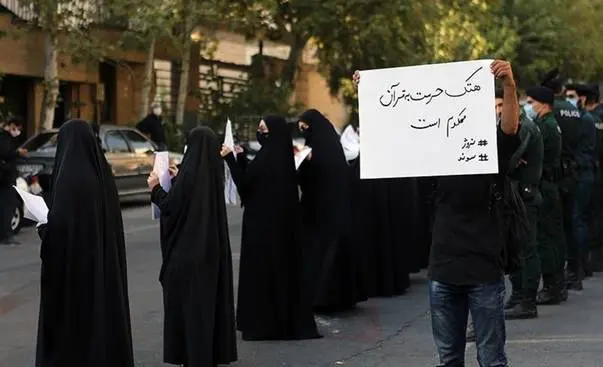 هتک حرمت به قرآن
محکوم است
#نروژ
#سوئد